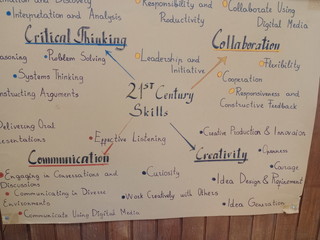 and Discovery
Interpretation and Analysis
Critical Thinking
Problem Solving
Systems Thinking
Arguments
Responsibility and
Productivity
Leadership and
Initiative
Collaborate Using
Digital Media
Collaboration
Flexibility
Cooperation
Responsiveness and
Constructive Feedback
21ST Century
Skills
Delivering Oral
Effective Listening
Communication
Engaging in Conversations and
Discussions
Communicating in Diverse
Communicate Using Digital Media
Creative Production &
Creativity
Openness
Courage
Curiosity
Idea Design &
Work Creatively with Others
Idea Generation